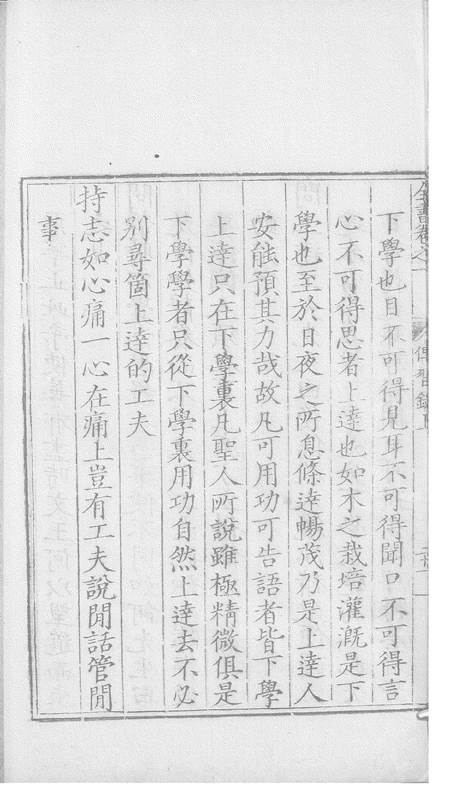 下學也目不可得見耳不可得聞口不可得言
心不可得思者上達也如木之栽培灌漑是下
學也至於日夜之所息條達暢茂乃是上達人
安能預其力哉故凡可用功可告語者皆下學
上達只在下學裏凡聖人所說雖極精微俱是
下學學者只從下學裏用功自然上達去不必
別尋箇上達的工夫
持志如心痛一心在痛上豈有工夫說閒話管閒
事